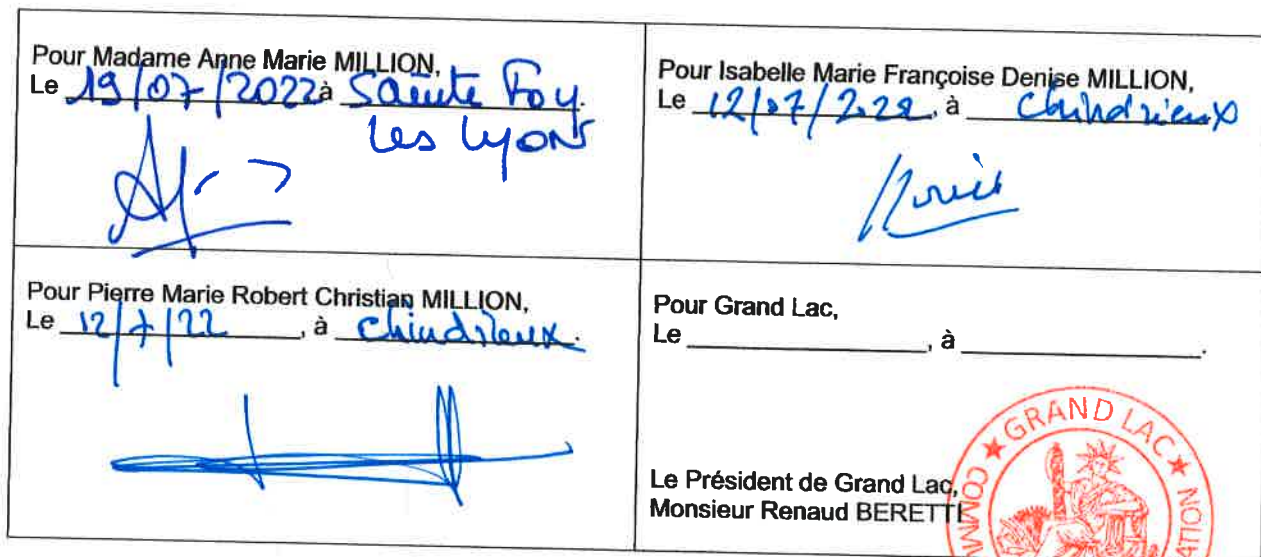 Pour Madame Anne Marie MILLION,
Le 19/07/2022 à Sainte Foy.
Les Lyons
Pour Isabelle Marie Françoise Denise MILLION,
Le 12/07/2022, à Chindrieux
Pour Pierre Marie Robert Christian MILLION,
Le 12/7/22, à Chindrieux.
Pour Grand Lac,
Le ____________, à ____________.
Le Président de Grand Lac,
Monsieur Renaud BERETTI
GRAND LAC